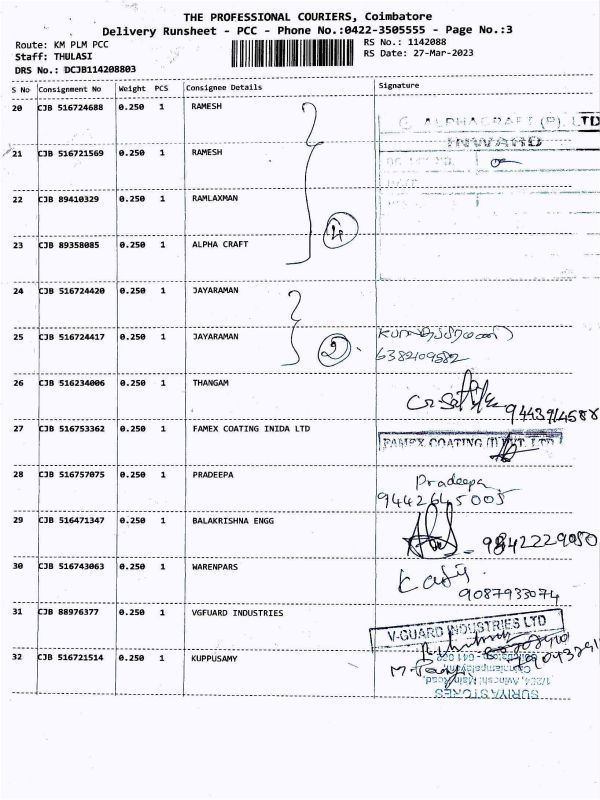 THE PROFESSIONAL COURIERS, Coimbatore
Delivery Runsheet - PCC - Phone No.:0422-3505555 - Page No.:3
Route: KM PLM PCC
RS No.: 1142088
Staff: THULASI
RS Date: 27-Mar-2023
DRS No.: DCJB114208803
S No Consignment No Weight PCS Consignee Details Signature
20 CJB 516724688 0.250 1 RAMESH
ALPHACRAFT (P). LTD
INWARD
21 CJB 516721569 0.250 1 RAMESH
22 CJB 89410329 0.250 1 RAMLAXMAN
4
23 CJB 89358085 0.250 1 ALPHA CRAFT
24 CJB 516724420 0.250 1 JAYARAMAN
25 CJB 516724417 0.250 1 JAYARAMAN
2
6382109582
26 CJB 516234006 0.250 1 THANGAM
9443914588
27 CJB 516753362 0.250 1 FAMEX COATING INIDA LTD
FAMEX COATING (I) PVT. LTD
28 CJB 516757075 0.250 1 PRADEEPA
Pradeepa
9442645005
29 CJB 516471347 0.250 1 BALAKRISHNA ENGG
9842229050
30 CJB 516743063 0.250 1 WARENPARS
9087933074
31 CJB 88976377 0.250 1 VGFUARD INDUSTRIES
V-GUARD INDUSTRIES LTD
32 CJB 516721514 0.250 1 KUPPUSAMY
1/25A, Avinashi Main Road,
SURIYA STORES